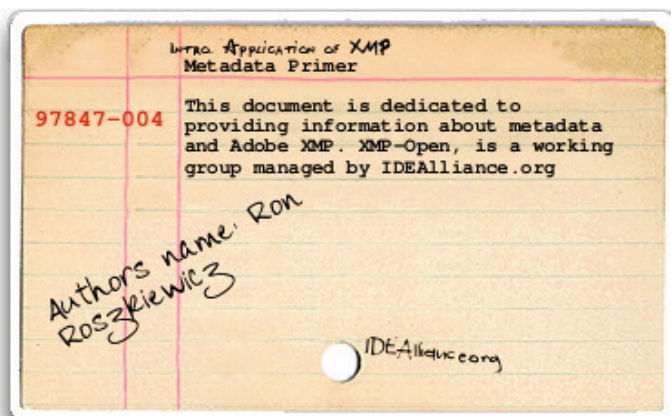 Intro. Application of XMP
Metadata Primer
97847-004
This document is dedicated to
providing information about metadata
and Adobe XMP. XMP-Open, is a working
group managed by IDEAlliance.org
Authors name: Ron
Roszkiewicz
IDEAlliance.org